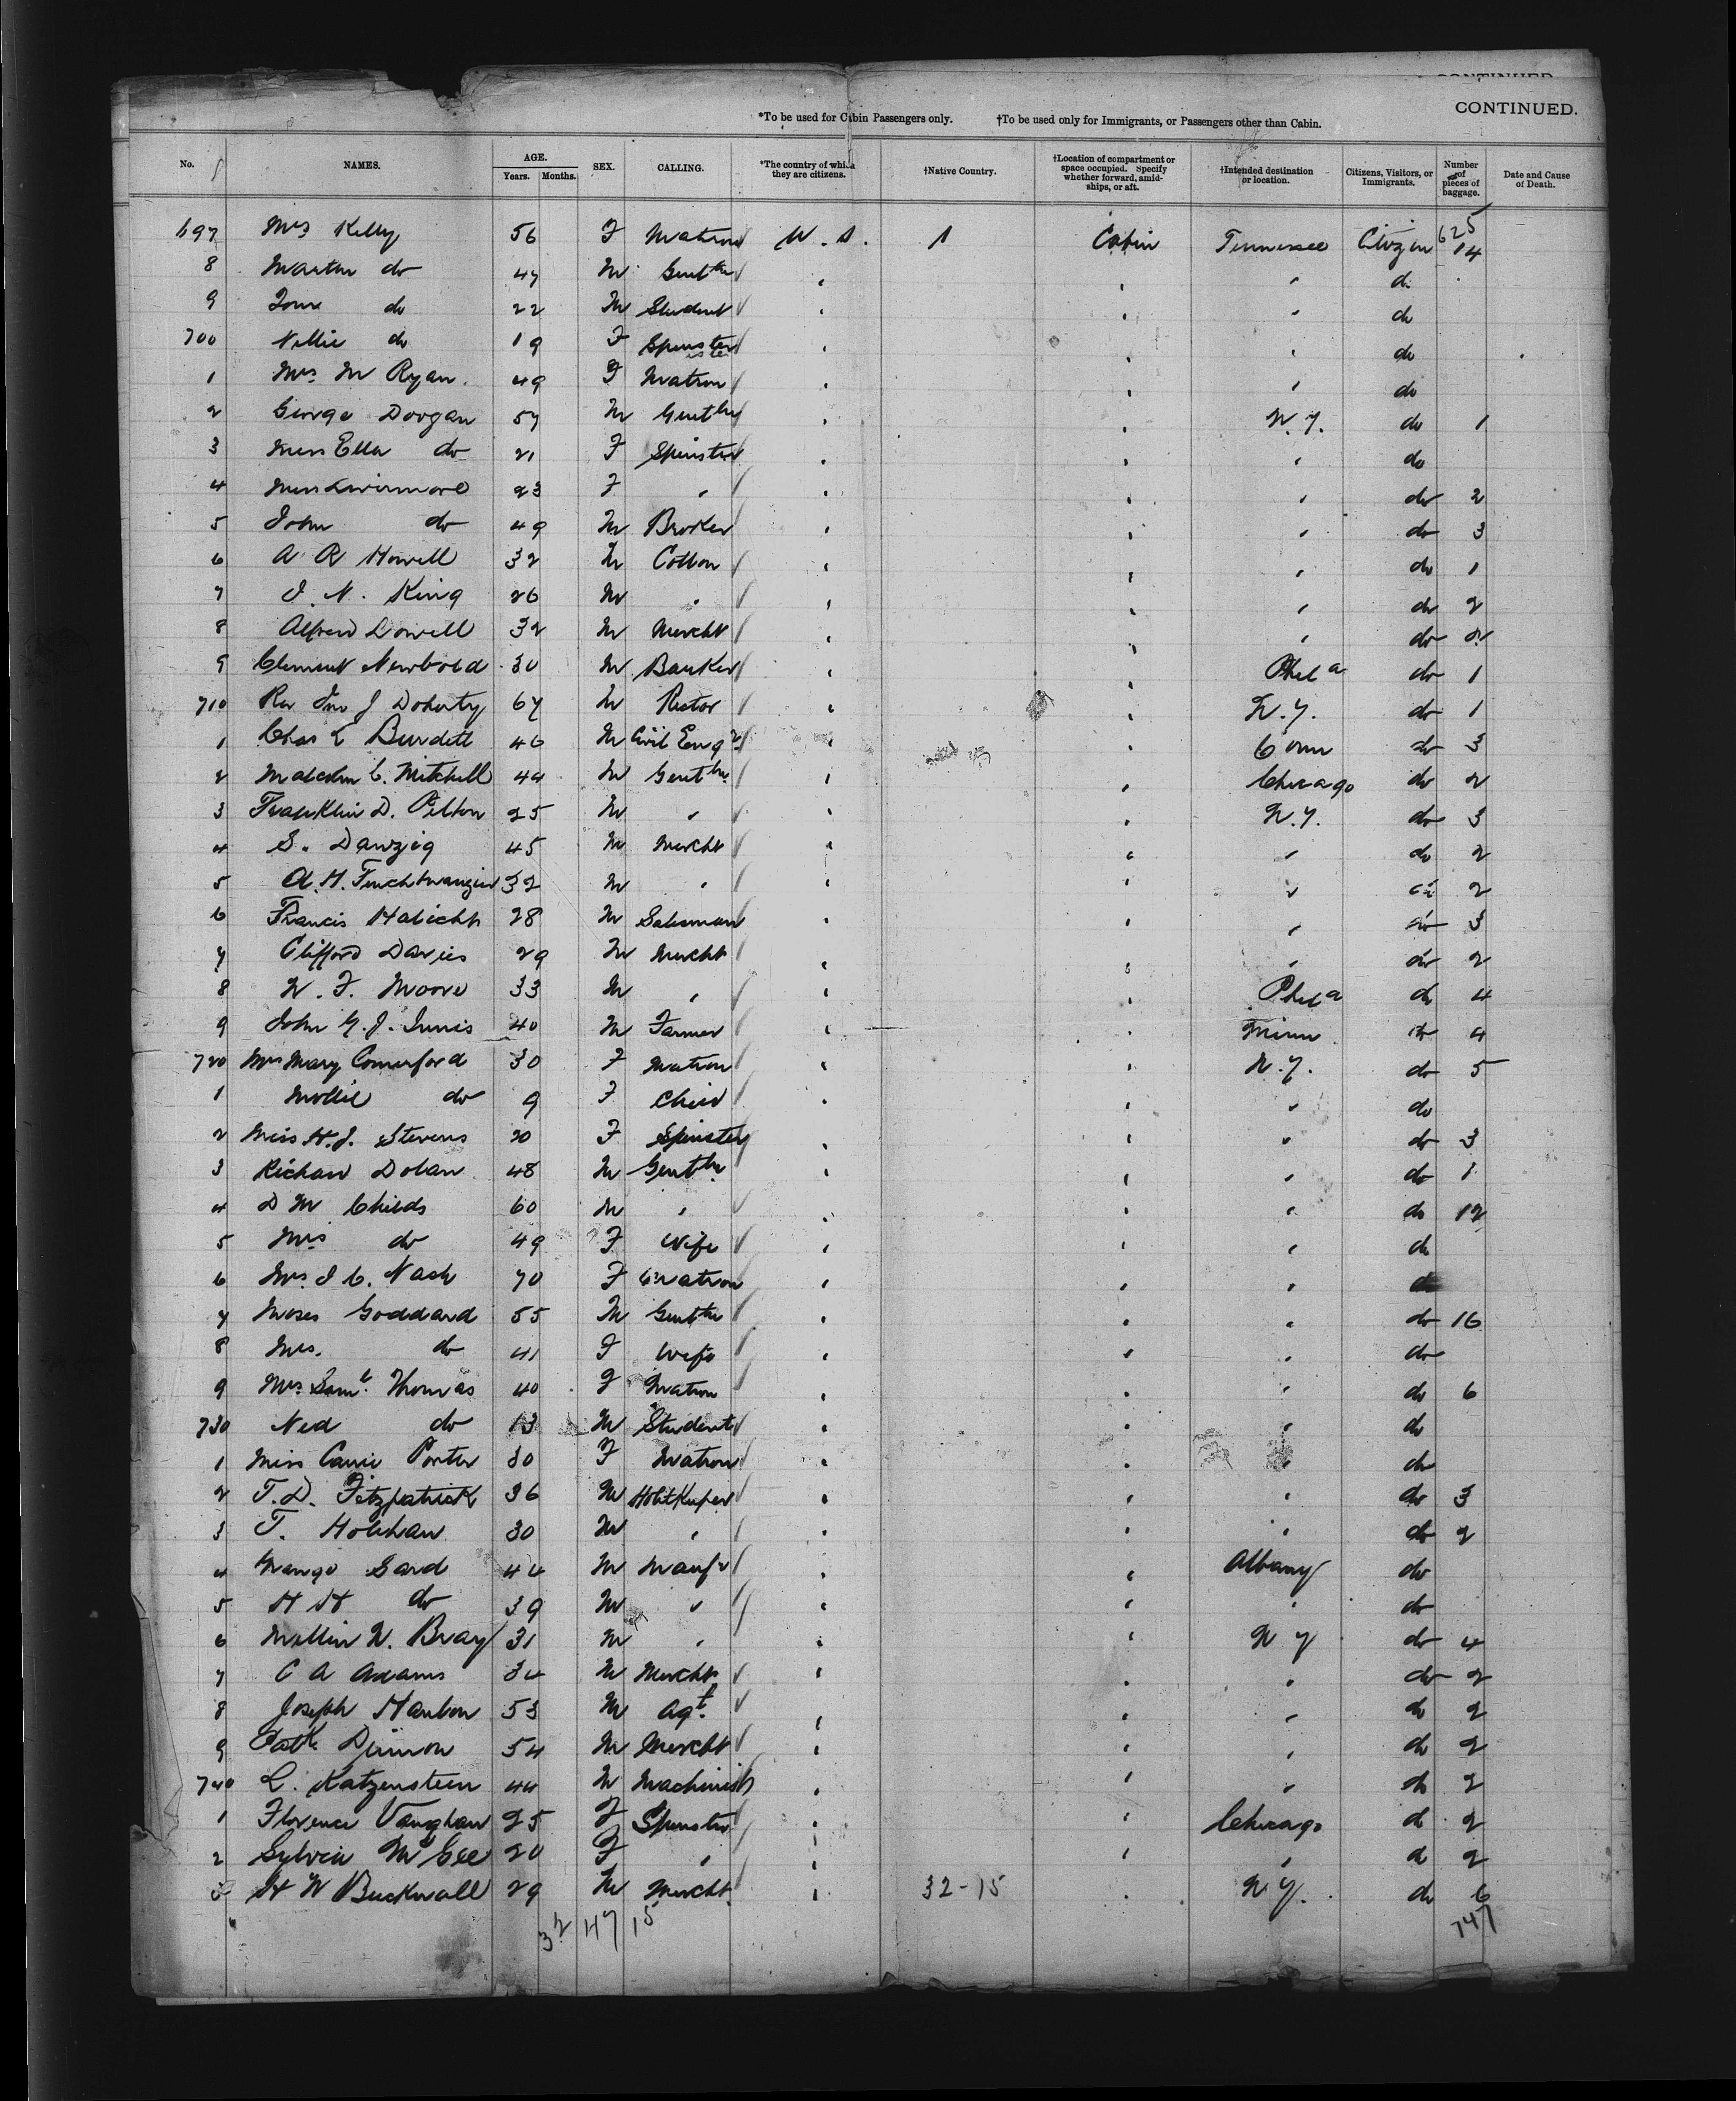 CONTINUED.
*To be used for Cabin Passengers only. †To be used only for Immigrants, or Passengers other than Cabin.
No. NAMES. AGE. Years. Months. SEX. CALLING. *The country of which they are citizens. †Native Country. †Location of compartment or space occupied. Specify whether forward, amidships, or aft. †Intended destination or location. Citizens, Visitors, or Immigrants. Number of pieces of baggage. Date and Cause of Death.
625
697 Mrs Kelly 56 F Matron U.S. 1 Cabin Tennessee Citizen 14
8 Martin do 47 M Gentln " " " do
9 do 22 M Student " " " do
700 Nellie do 19 F Spinster " " " do
1 Mrs M Ryan. 49 F Matron " " " do
2 George Doogan 57 M Gentln " " N.Y. do 1
3 Miss Ella do 21 F Spinster " " " do
4 Miss Livermore 23 F " " " " do 2
5 John do 49 M Broker " " " do 3
6 A R Howell 32 M Cotton " " " do 1
7 J. N. King 26 M " " " " do 2
8 Alfred Lowell 32 M Mercht " " " do 2
9 Clement Newbold 30 M Banker " " Phila do 1
710 Rev Jno J Doherty 67 M Rector " " N.Y. do 1
1 Chas L Burdett 46 M Civil Engr " " Conn do 3
2 Malcolm C. Mitchell 44 M Gentln " " Chicago do 2
3 Franklin D. Pelton 25 M " " " N.Y. do 3
4 S. Danzig 45 M Mercht " " " do 2
5 A.H. Feuchtwanger 32 M " " " " do 2
6 Francis Habicht 28 M Salesman " " " do 3
7 Clifford Davies 29 M Mercht " " " do 2
8 W. F. Moore 33 M " " " Phila do 4
9 John G. J. Innis 40 M Farmer " " Minn do 4
720 Mrs Mary Comerford 30 F Matron " " N.Y. do 5
1 Mollie do 9 F Child " " " do
2 Miss H.J. Stevens 20 F Spinster " " " do 3
3 Richard Dolan 48 M Gentln " " " do 1
4 D M Childs 60 M " " " " do 12
5 Mrs do 49 F Wife " " " do
6 Mrs J C. Nash 70 F Matron " " " do
7 Moses Goddard 55 M Gentln " " " do 16
8 Mrs. do 41 F Wife " " " do
9 Mrs Saml. Thomas 40 F Matron " " " do 6
730 Ned do 13 M Student " " " do
1 Miss Carrie Porter 30 F Matron " " " do
2 T.D. Fitzpatrick 36 M HotlKeeper " " " do 3
3 T. Holehan 30 M " " " " do 2
4 Gard 44 M Manfr " " Albany do
5 H H do 39 M " " " " do
6 Mellin N. Bray 31 M " " " N Y do 4
7 C A Adams 34 M Mercht " " " do 2
8 Joseph Hanbon 53 M Agt. " " " do 2
9 Patk 54 M Mercht " " " do 2
740 L. Katzenstein 44 M Machinist " " " do 2
1 Florence Vaughan 25 F Spinster " " Chicago do 2
2 Sylvia McGee 20 F " " " " do 2
3 H W Bucknall 29 M Mercht. " 32-15 " N Y. do 6
32 47 15 747